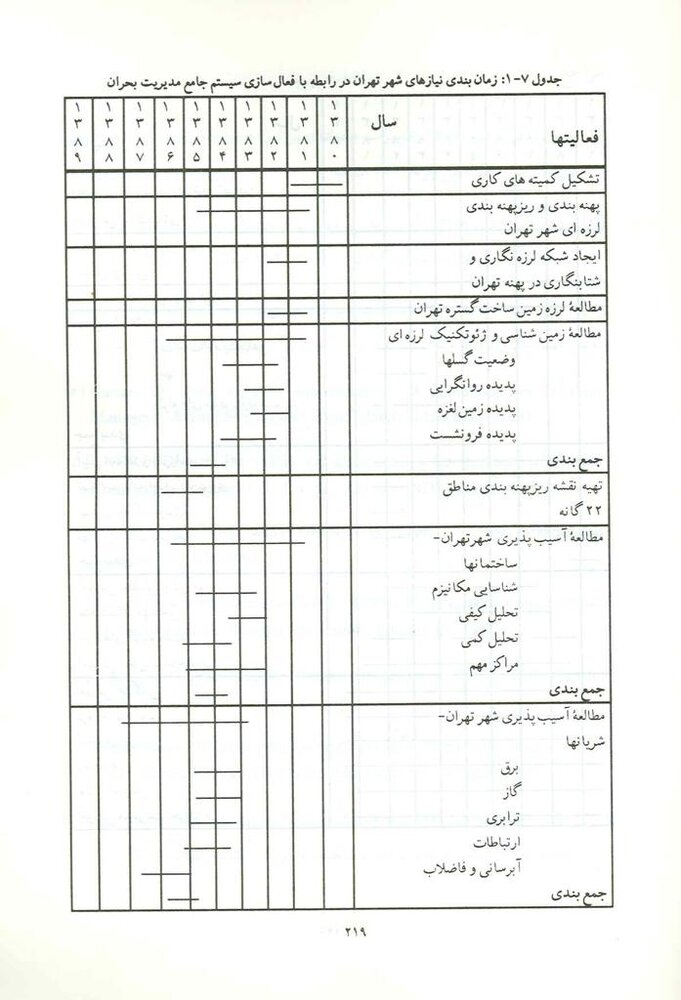 جدول ۷-۱: زمان بندی نیازهای شهر تهران در رابطه با فعال سازی سیستم جامع مدیریت بحران
فعالیتها
سال
۱۳۸۰
۱۳۸۱
۱۳۸۲
۱۳۸۳
۱۳۸۴
۱۳۸۵
۱۳۸۶
۱۳۸۷
۱۳۸۸
۱۳۸۹
تشکیل کمیته های کاری
پهنه بندی و ریزپهنه بندی
لرزه ای شهر تهران
ایجاد شبکه لرزه نگاری و
شتابنگاری در پهنه تهران
مطالعۀ لرزه زمین ساخت گستره تهران
مطالعۀ زمین شناسی و ژئوتکنیک لرزه ای
وضعیت گسلها
پدیده روانگرایی
پدیده زمین لغزه
پدیده فرونشست
جمع بندی
تهیه نقشه ریزپهنه بندی مناطق
۲۲ گانه
مطالعۀ آسیب پذیری شهرتهران-
ساختمانها
شناسایی مکانیزم
تحلیل کیفی
تحلیل کمی
مراکز مهم
جمع بندی
مطالعۀ آسیب پذیری شهر تهران-
شریانها
برق
گاز
ترابری
ارتباطات
آبرسانی و فاضلاب
جمع بندی
۲۱۹